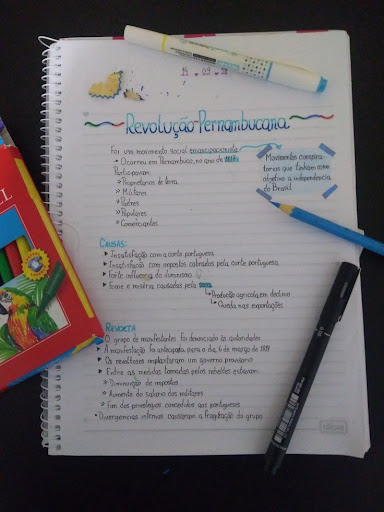 19 ♥ 09 ♥
Revolução Pernambucana
Foi um movimento social emancipacionista
• Ocorreu em Pernambuco, no ano de 1817.
Participavam:
» Proprietários de terra
» Militares
» Padres
» Populares
» Comerciantes
Movimentos conspira
tórios que tinham como
objetivo a independência
do Brasil
CAUSAS:
➤ Insatisfação com a corte portuguesa
➤ Insatisfação com impostos cobrados pela corte portuguesa
➤ Forte influência do iluminismo
➤ Fome e miséria causadas pela seca
Produção agrícola em declínio
Queda nas exportações
REVOLTA
➤ O grupo de manifestantes foi denunciado às autoridades
➤ A manifestação foi antecipada para o dia 6 de março de 1817
➤ Os revoltosos implantaram um governo provisório
➤ Entre as medidas tomadas pelos rebeldes estavam:
» Diminuição de impostos
» Aumento do salário dos militares
» Fim dos privilégios concedidos aos portugueses
• Divergências internas causaram a fragilização do grupo